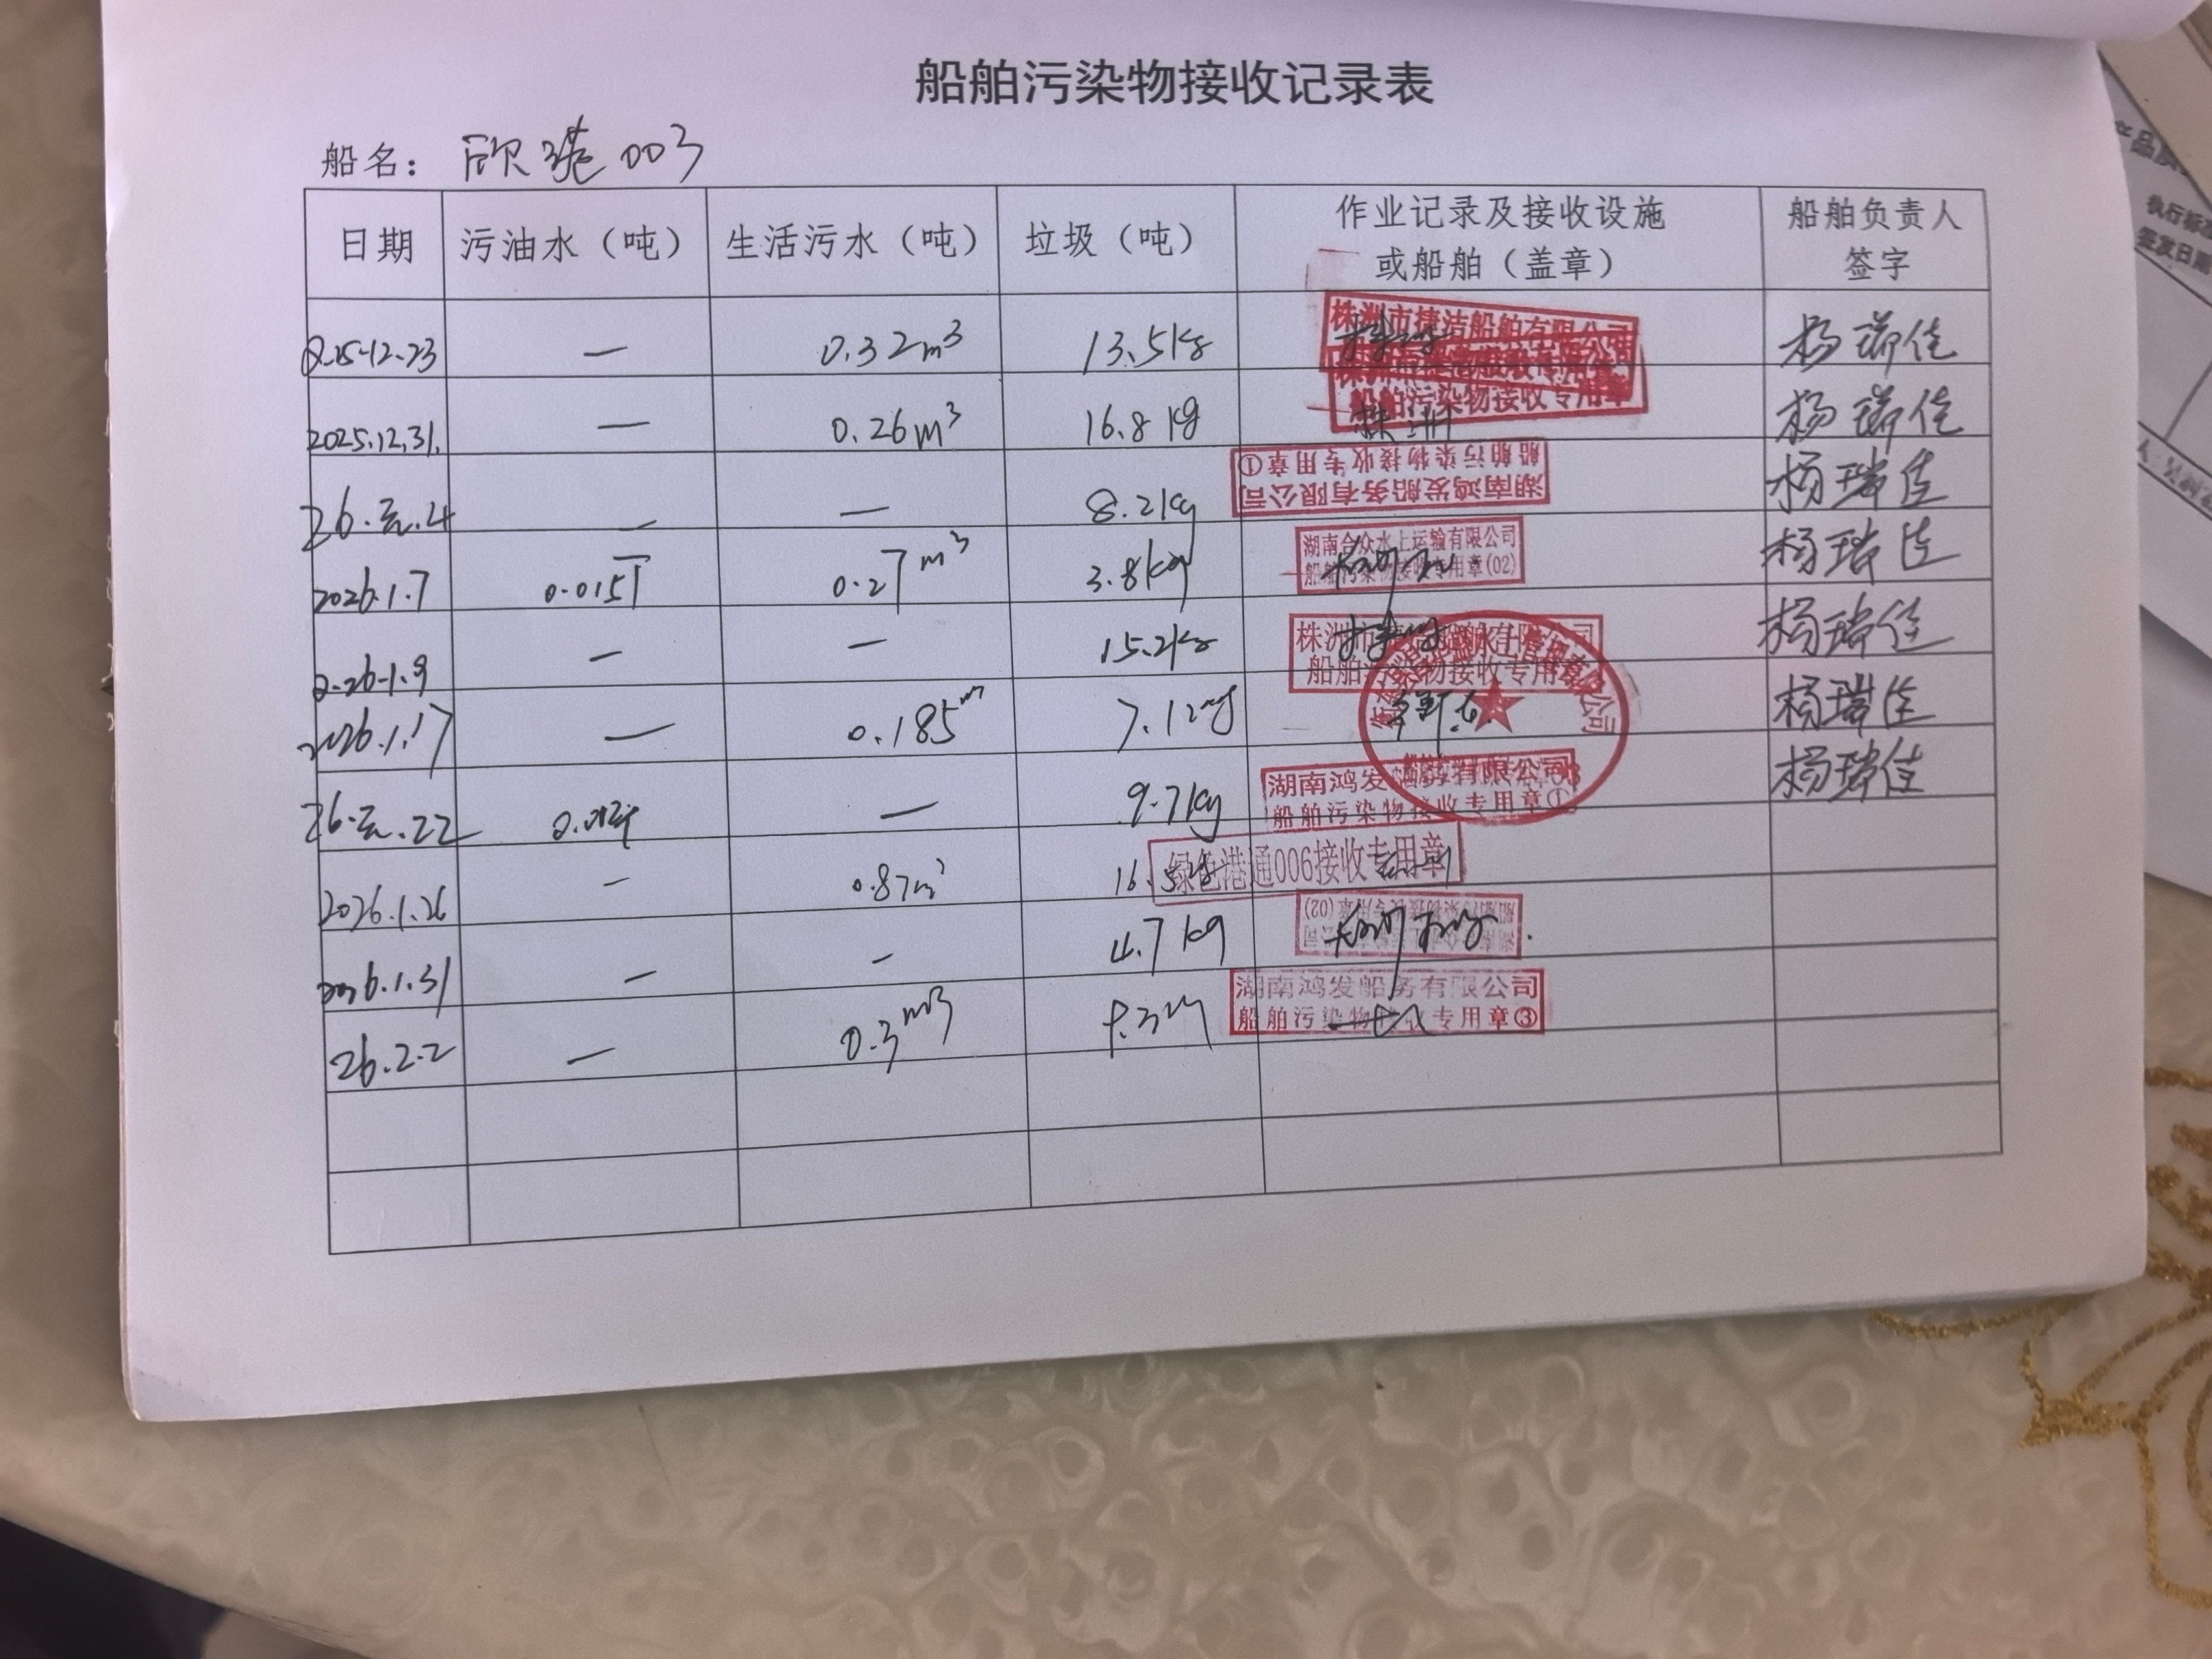 船舶污染物接收记录表
船名： 欣港003
日期 污油水（吨） 生活污水（吨） 垃圾（吨） 作业记录及接收设施或船舶（盖章） 船舶负责人签字
2025-12-23 — 0.32m³ 13.5kg 株洲市捷洁船舶有限公司 杨瑞佳
2025.12.31. — 0.26m³ 16.8kg 船舶污染物接收专用章 株洲 杨瑞佳
26.元.4 — — 8.2kg 湖南鸿发船务有限公司 船舶污染物接收专用章① 杨瑞佳
2026.1.7 0.015T 0.27m³ 3.8kg 湖南合众水上运输有限公司 船舶污染物接收专用章(02) 杨瑞佳
2026-1.9 — — 15.2kg 株洲市捷洁船舶有限公司 船舶污染物接收专用章 杨瑞佳
2026.1.17 — 0.185m 7.12kg 杨瑞佳
26.元.22 — 9.7kg 湖南鸿发船务有限公司 船舶污染物接收专用章① 杨瑞佳
2026.1.26 — 0.87m³ 16.5kg 绿色港通006接收专用章
2026.1.31 — — 4.7kg 船舶污染物接收专用章(02)
26.2.2 — 0.3m3 湖南鸿发船务有限公司 船舶污染物接收专用章③
产品质
执行标准
签发日期